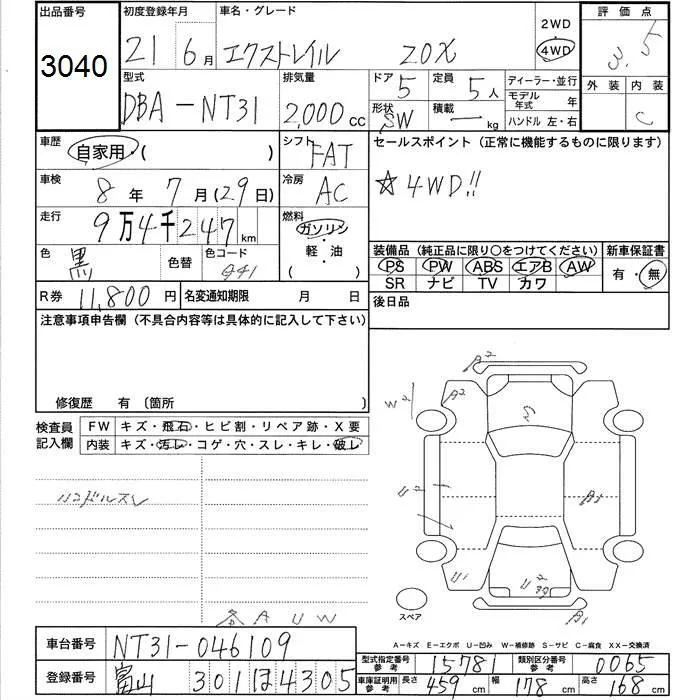 出品番号
3040
初度登録年月
21年 6月
車名・グレード
エクストレイル 20X
2WD
4WD
評価点
3.5
型式
DBA-NT31
排気量
2,000 cc
ドア
5
定員
5人
ディーラー・並行
モデル年式 年
ハンドル 左・右
形状
SW
積載
ー kg
外装
内装
C
車歴
自家用・( )
シフト
FAT
セールスポイント (正常に機能するものに限ります)
☆4WD!!
車検
8年 7月(29日)
冷房
AC
走行
9万4千247km
燃料
ガソリン・
軽・油
( )
色
黒
色替
色コード
装備品 (純正品に限り○をつけてください)
PS PW ABS エアB AW
SR ナビ TV カワ
新車保証書
有・無
R券
11,800円
名変通知期限 月 日
後日品
注意事項申告欄 (不具合内容等は具体的に記入して下さい)
修復歴 有 〔箇所 〕
検査員
記入欄
FW キズ・飛石・ヒビ割・リペア跡・X要
内装 キズ・汚レ・コゲ・穴・スレ・キレ・破レ
ハンドルスレ
各AUW
A2
A2
W2
U2
A1
U1
U2
A1
スペア
A-キズ E-エクボ U-凹み W-補修跡 S-サビ C-腐食 XX-交換済
車台番号
NT31-046109
登録番号
富山 301 ほ 4305
型式指定番号
参考
15781
類別区分番号
参考
0065
車庫証明用
参考
長さ 459cm 幅 178cm 高さ 168cm